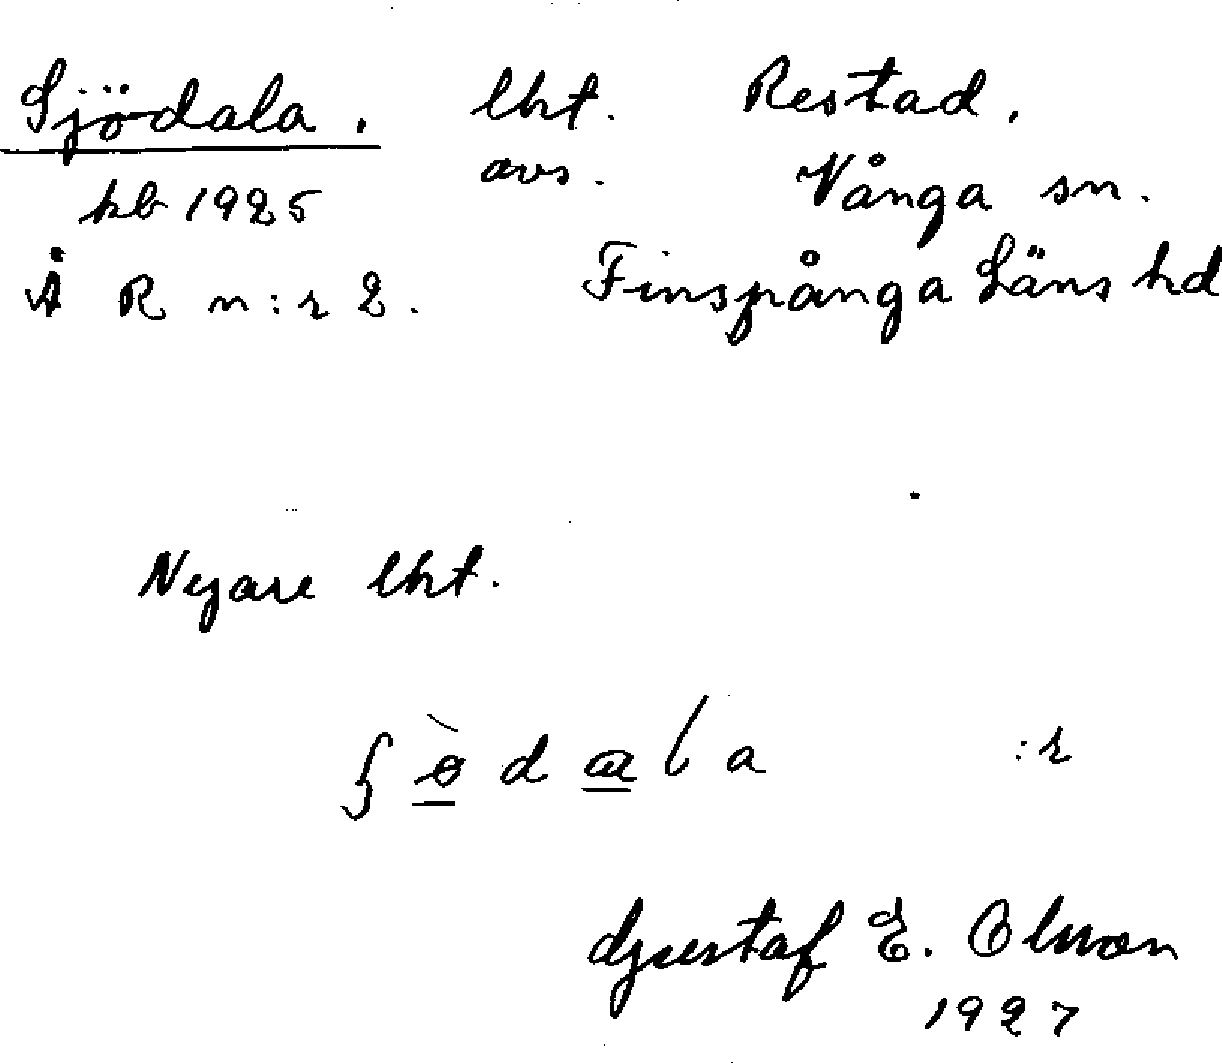 Sjödala. lht. Restad.
avs. Vånga sn.
kb 1925
Å R n:r 2. Finspånga Läns hd
Nyare lht.
:r
Gustaf E. Olsson
1927